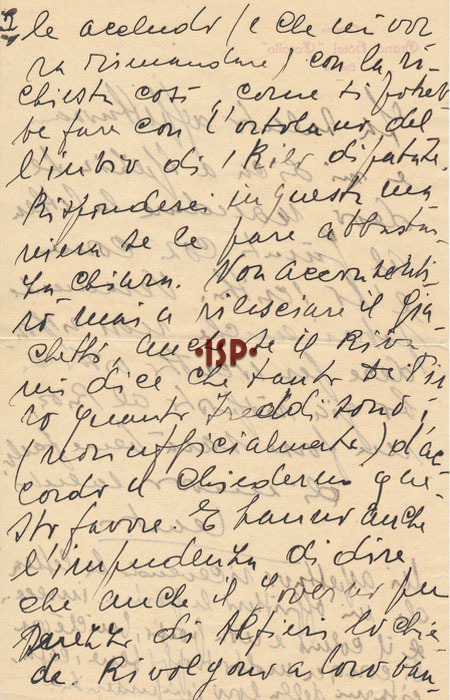 le accludo (e che mi vor
rà rimandare) con la ri
chiesta così, come si potreb
be fare con l'ortolano del
l'invio di 1 Kilo di patate.
Risponderei in questa ma
niera se le pare abbastan
za chiara. Non acconsenti
rò mai a rilasciare il Gia
chetti, anche se il Riva
mi dice che tanto De Pir
ro quanto Freddi sono
(non ufficialmente) d'ac
cordo a chiedermi que
sto favore. E hanno anche
l'impudenza di dire
che anche il Governo per
di Alfieri lo chie
de. Rivolgono a loro van
·ISP·